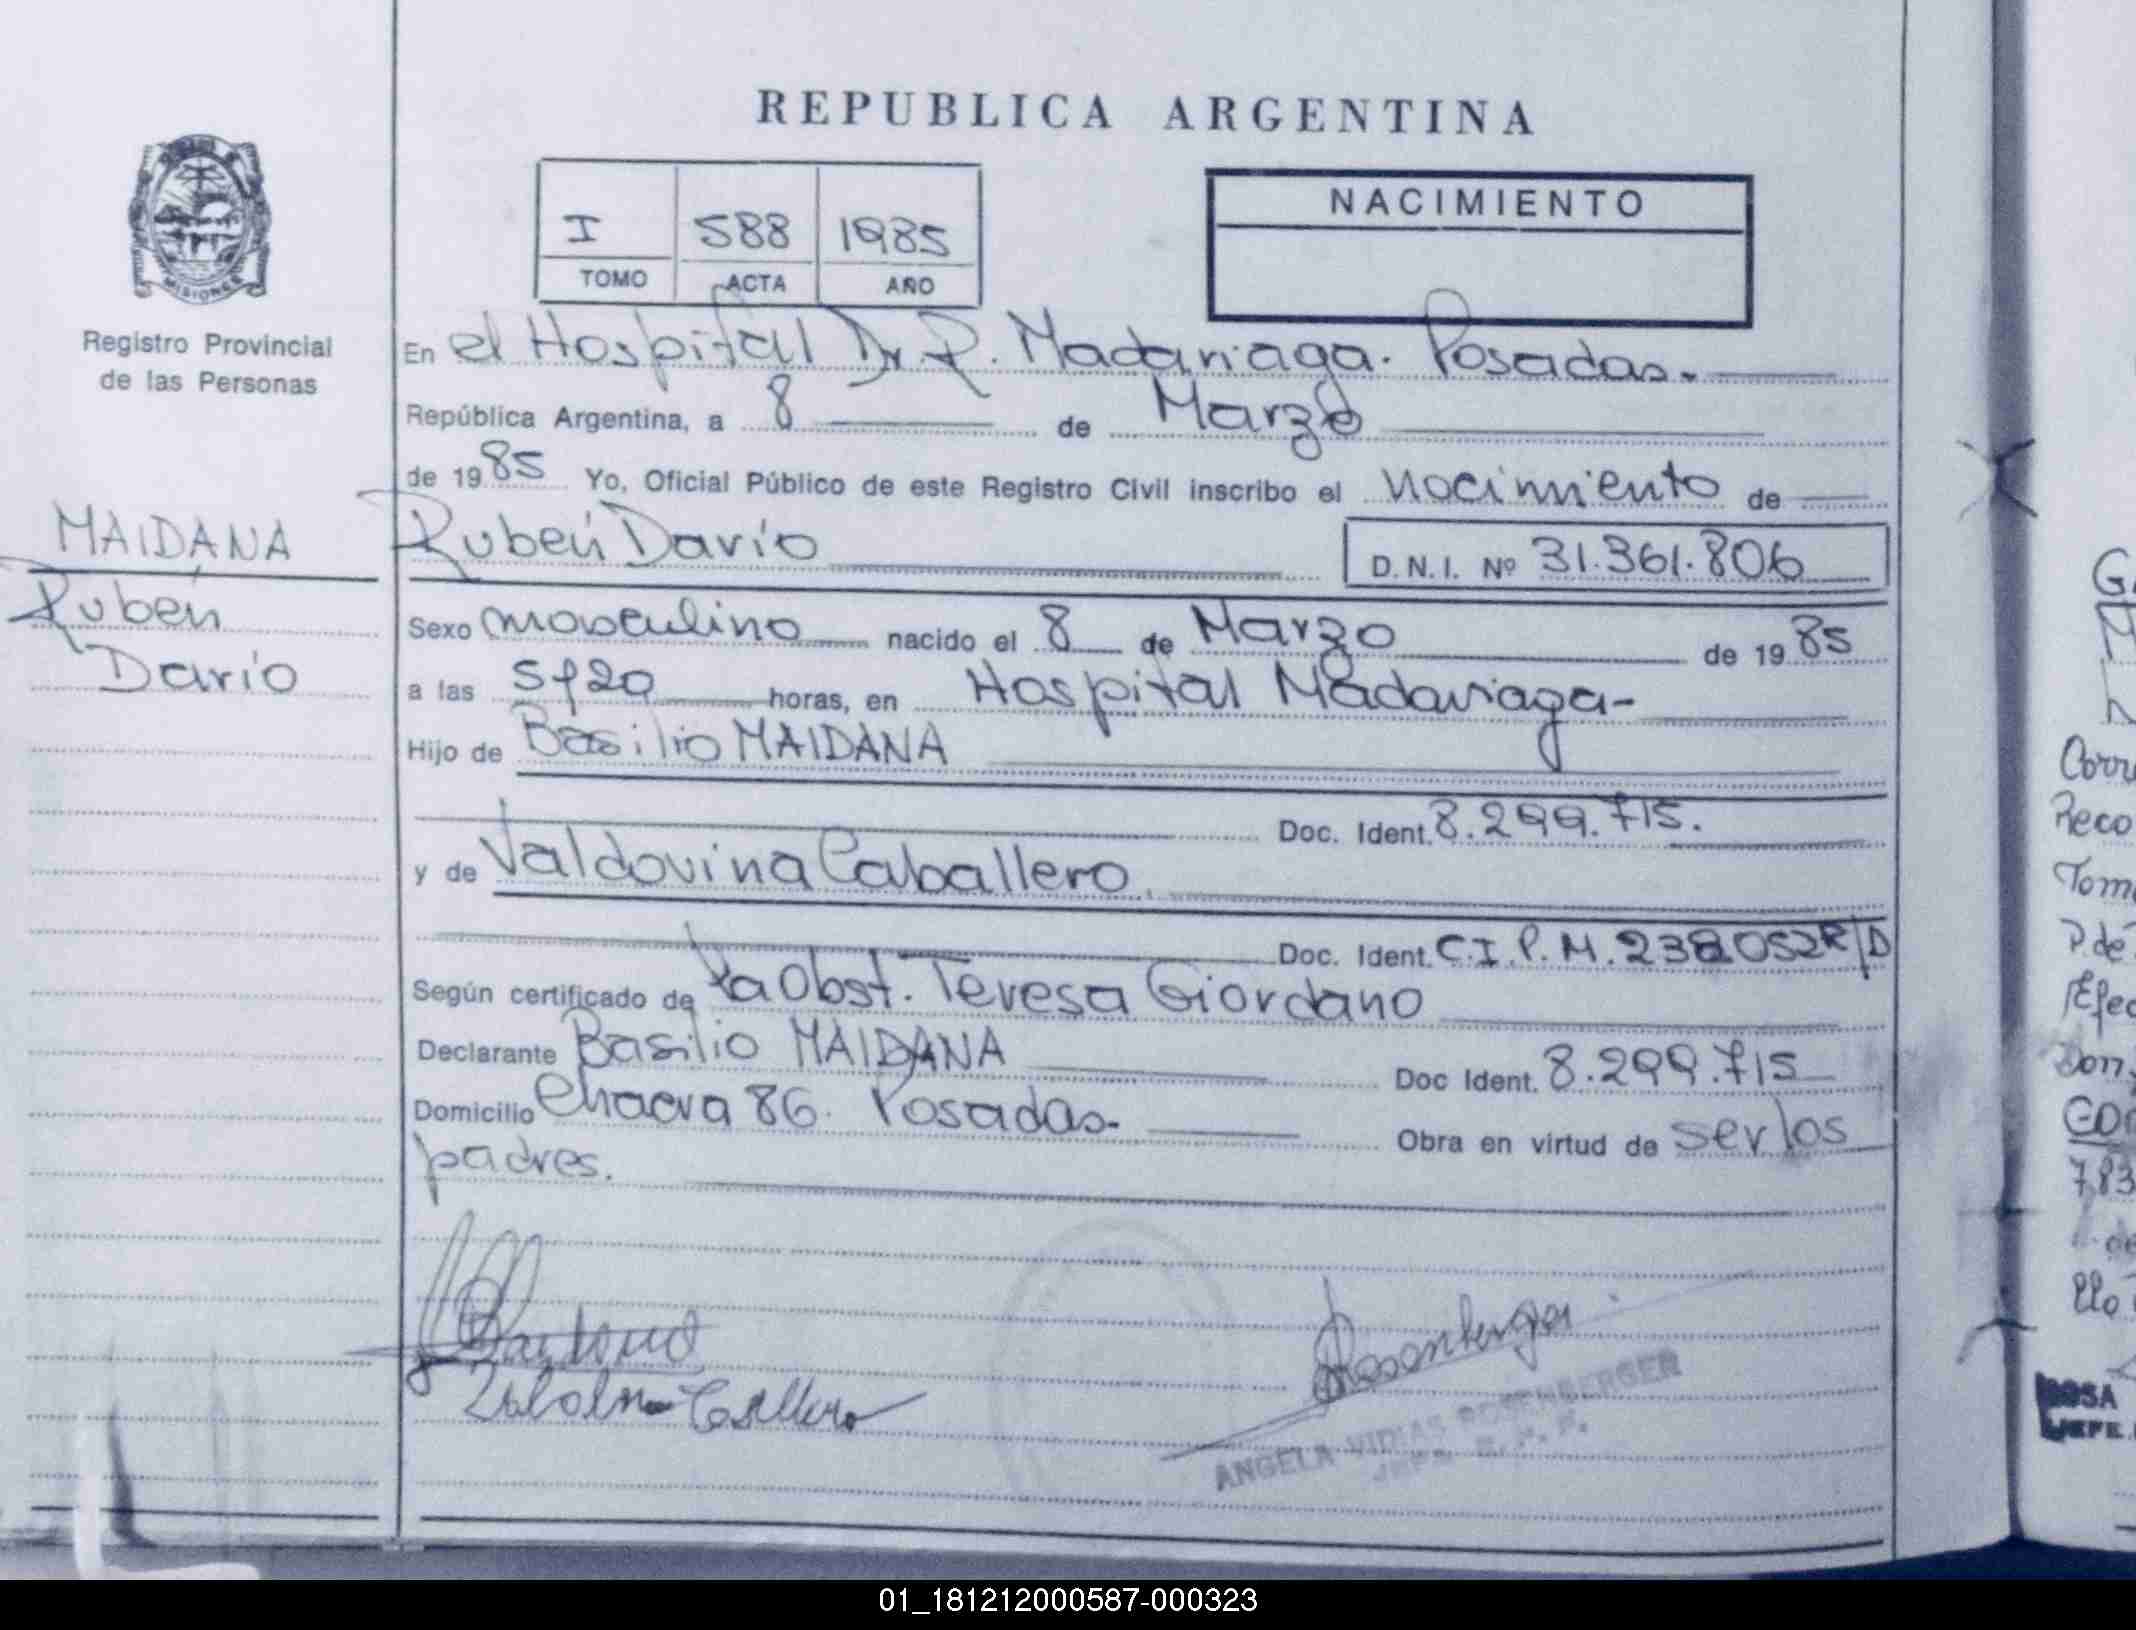 REPUBLICA ARGENTINA
MISIONES
Registro Provincial
de las Personas
I 588 1985
TOMO ACTA AÑO
NACIMIENTO
En el Hospital Dr. R. Madariaga. Posadas.
República Argentina, a 8 de Marzo
de 1985 Yo, Oficial Público de este Registro Civil inscribo el nacimiento de
MAIDANA
Rubén
Darío
Rubén Darío D.N.I. Nº 31.361.806
Sexo masculino nacido el 8 de Marzo de 1985
a las 5y20 horas, en Hospital Madariaga-
Hijo de Basilio MAIDANA
Doc. Ident. 8.299.715.
y de Valdovina Caballero.
Doc. Ident. C.I.P.M. 238052R/D
Según certificado de la Obst. Teresa Giordano
Declarante Basilio MAIDANA Doc Ident. 8.299.715
Domicilio 86. Posadas- Obra en virtud de ser los
padres.
Rosenberger
ANGELA VIDIAS ROSENBERGER
01_181212000587-000323